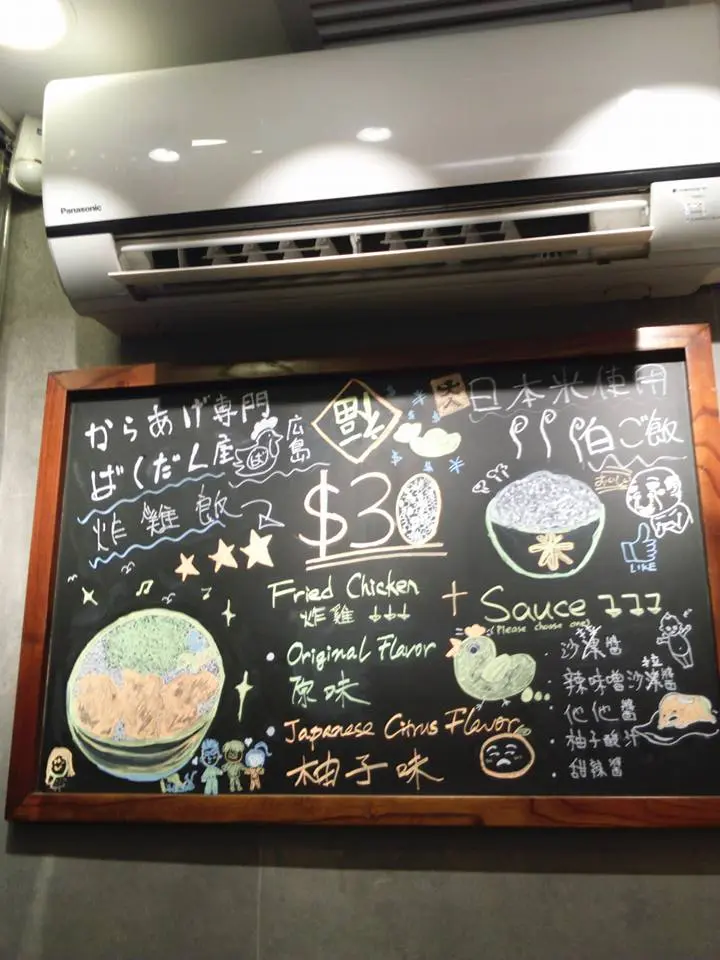 Panasonic
からあげ専門
ばくだん屋
広島
炸雞飯
福
$30
大
日本米使用
白ご飯
おいしい
米
LIKE
Fried Chicken
炸雞 ↓↓↓
+ Sauce
(Please choose one)
• Original Flavor
原味
• Japanese Citrus Flavor
柚子味
• 沙律醬
• 辣味噌沙拉醬
• 他他醬
• 柚子酸汁
• 甜辣醬